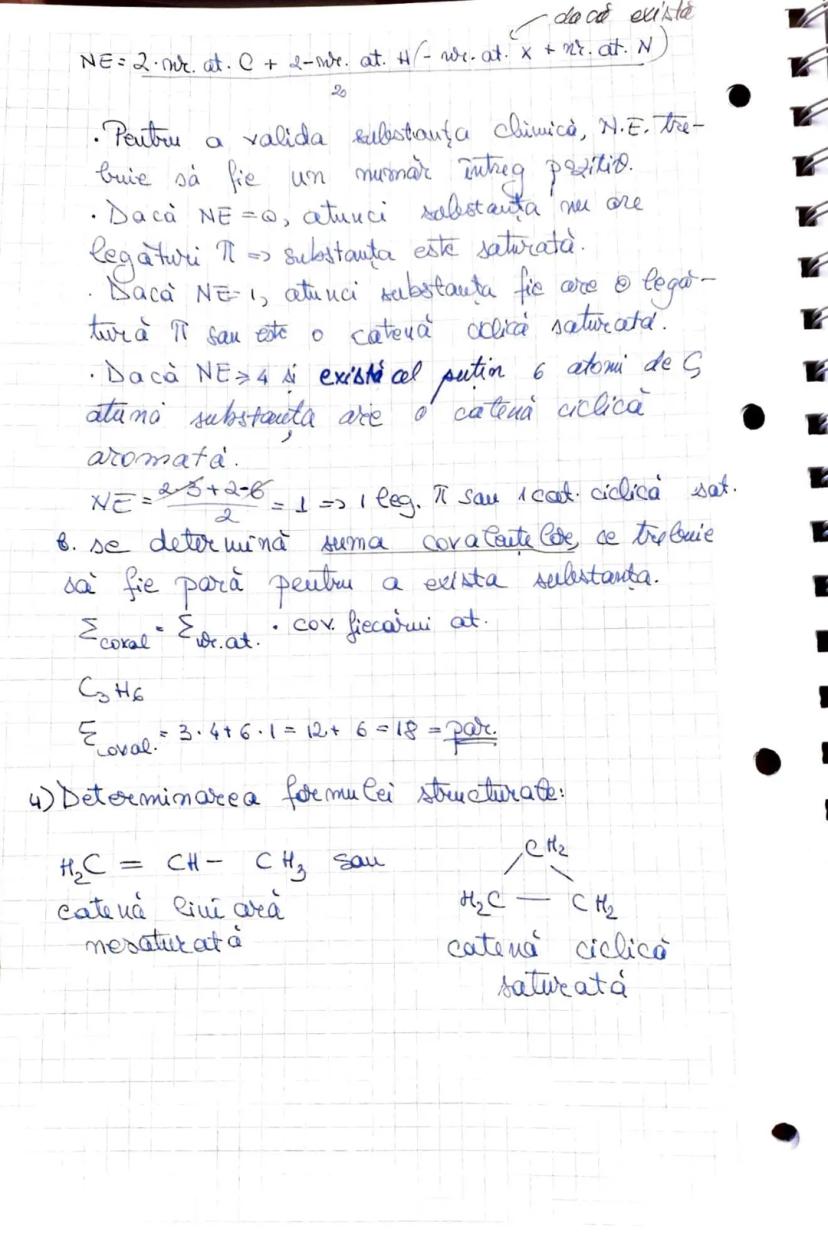 dacă există
NE = 2·nr. at. C + 2 - nr. at. H (- nr. at. X + nr. at. N)
2
· Pentru a valida substanța chimică, N.E. tre-
buie să fie un număr întreg pozitiv.
· Dacă NE = 0, atunci substanța nu are
legături π => substanța este saturată.
· Dacă NE = 1, atunci substanța fie are o legă-
tură π sau este o catenă ciclică saturată.
· Dacă NE ≥ 4 și există cel puțin 6 atomi de C,
atunci substanța are o catenă ciclică
aromată.
NE = 2·3+2-6 / 2 = 1 => 1 leg. π sau 1 cat. ciclică sat.
b. se determină suma covalențelor, ce trebuie
să fie pară pentru a exista substanța.
Σcoval = Σnr.at. · cov. fiecărui at.
C3H6
Σcoval. = 3·4+6·1 = 12+6 = 18 = par.
4) Determinarea formulei structurale:
H2C = CH - CH3 sau
catenă liniară
nesaturată
CH2
H2C — CH2
catenă ciclică
saturată